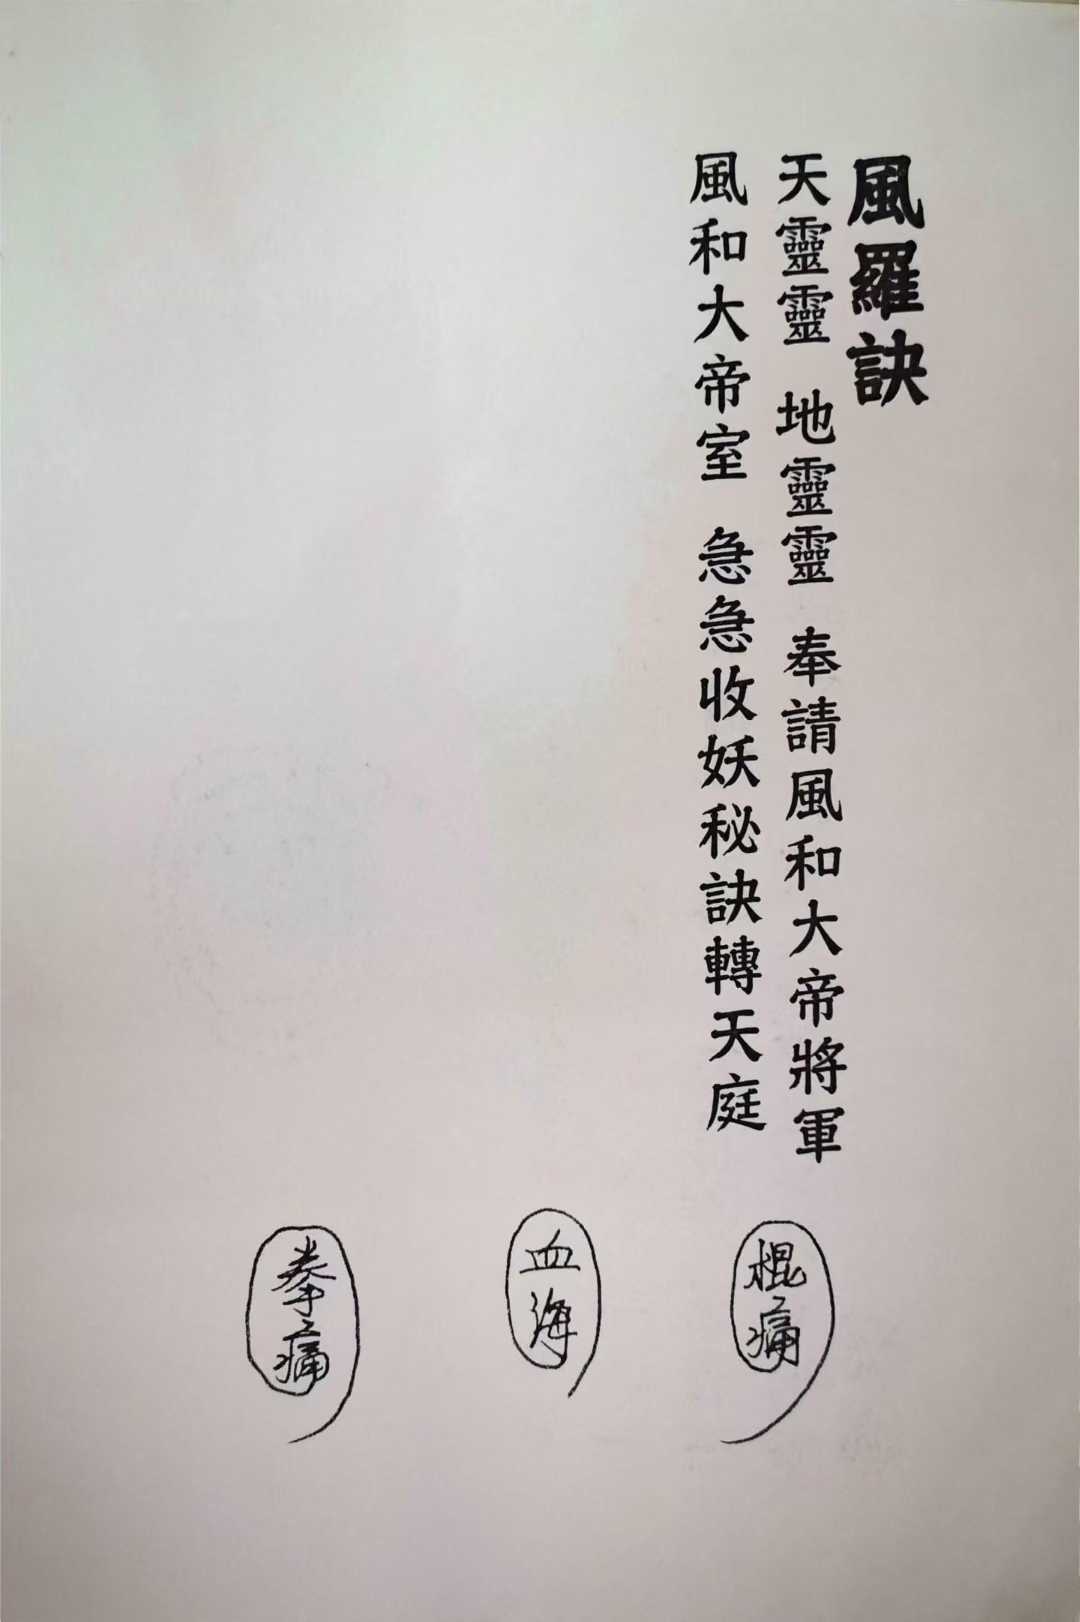 風羅訣
天靈靈 地靈靈 奉請風和大帝將軍
風和大帝室 急急收妖秘訣轉天庭
棍痛
血海
拳痛